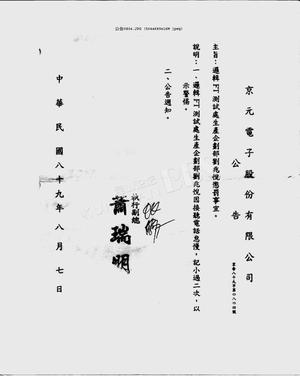 公告0804.JPG (5044X6541X0M jpeg)
京元電子股份有限公司
公告
主旨：邏輯FT測試處生產企劃部劉兆悅懲罰事宜。
說明：一、邏輯FT測試處生產企劃部劉兆悅因接聽電話怠慢，記小過二次，以
示警惕。
二、公告週知。
執行副總
蕭瑞明
中華民國八十九年八月七日